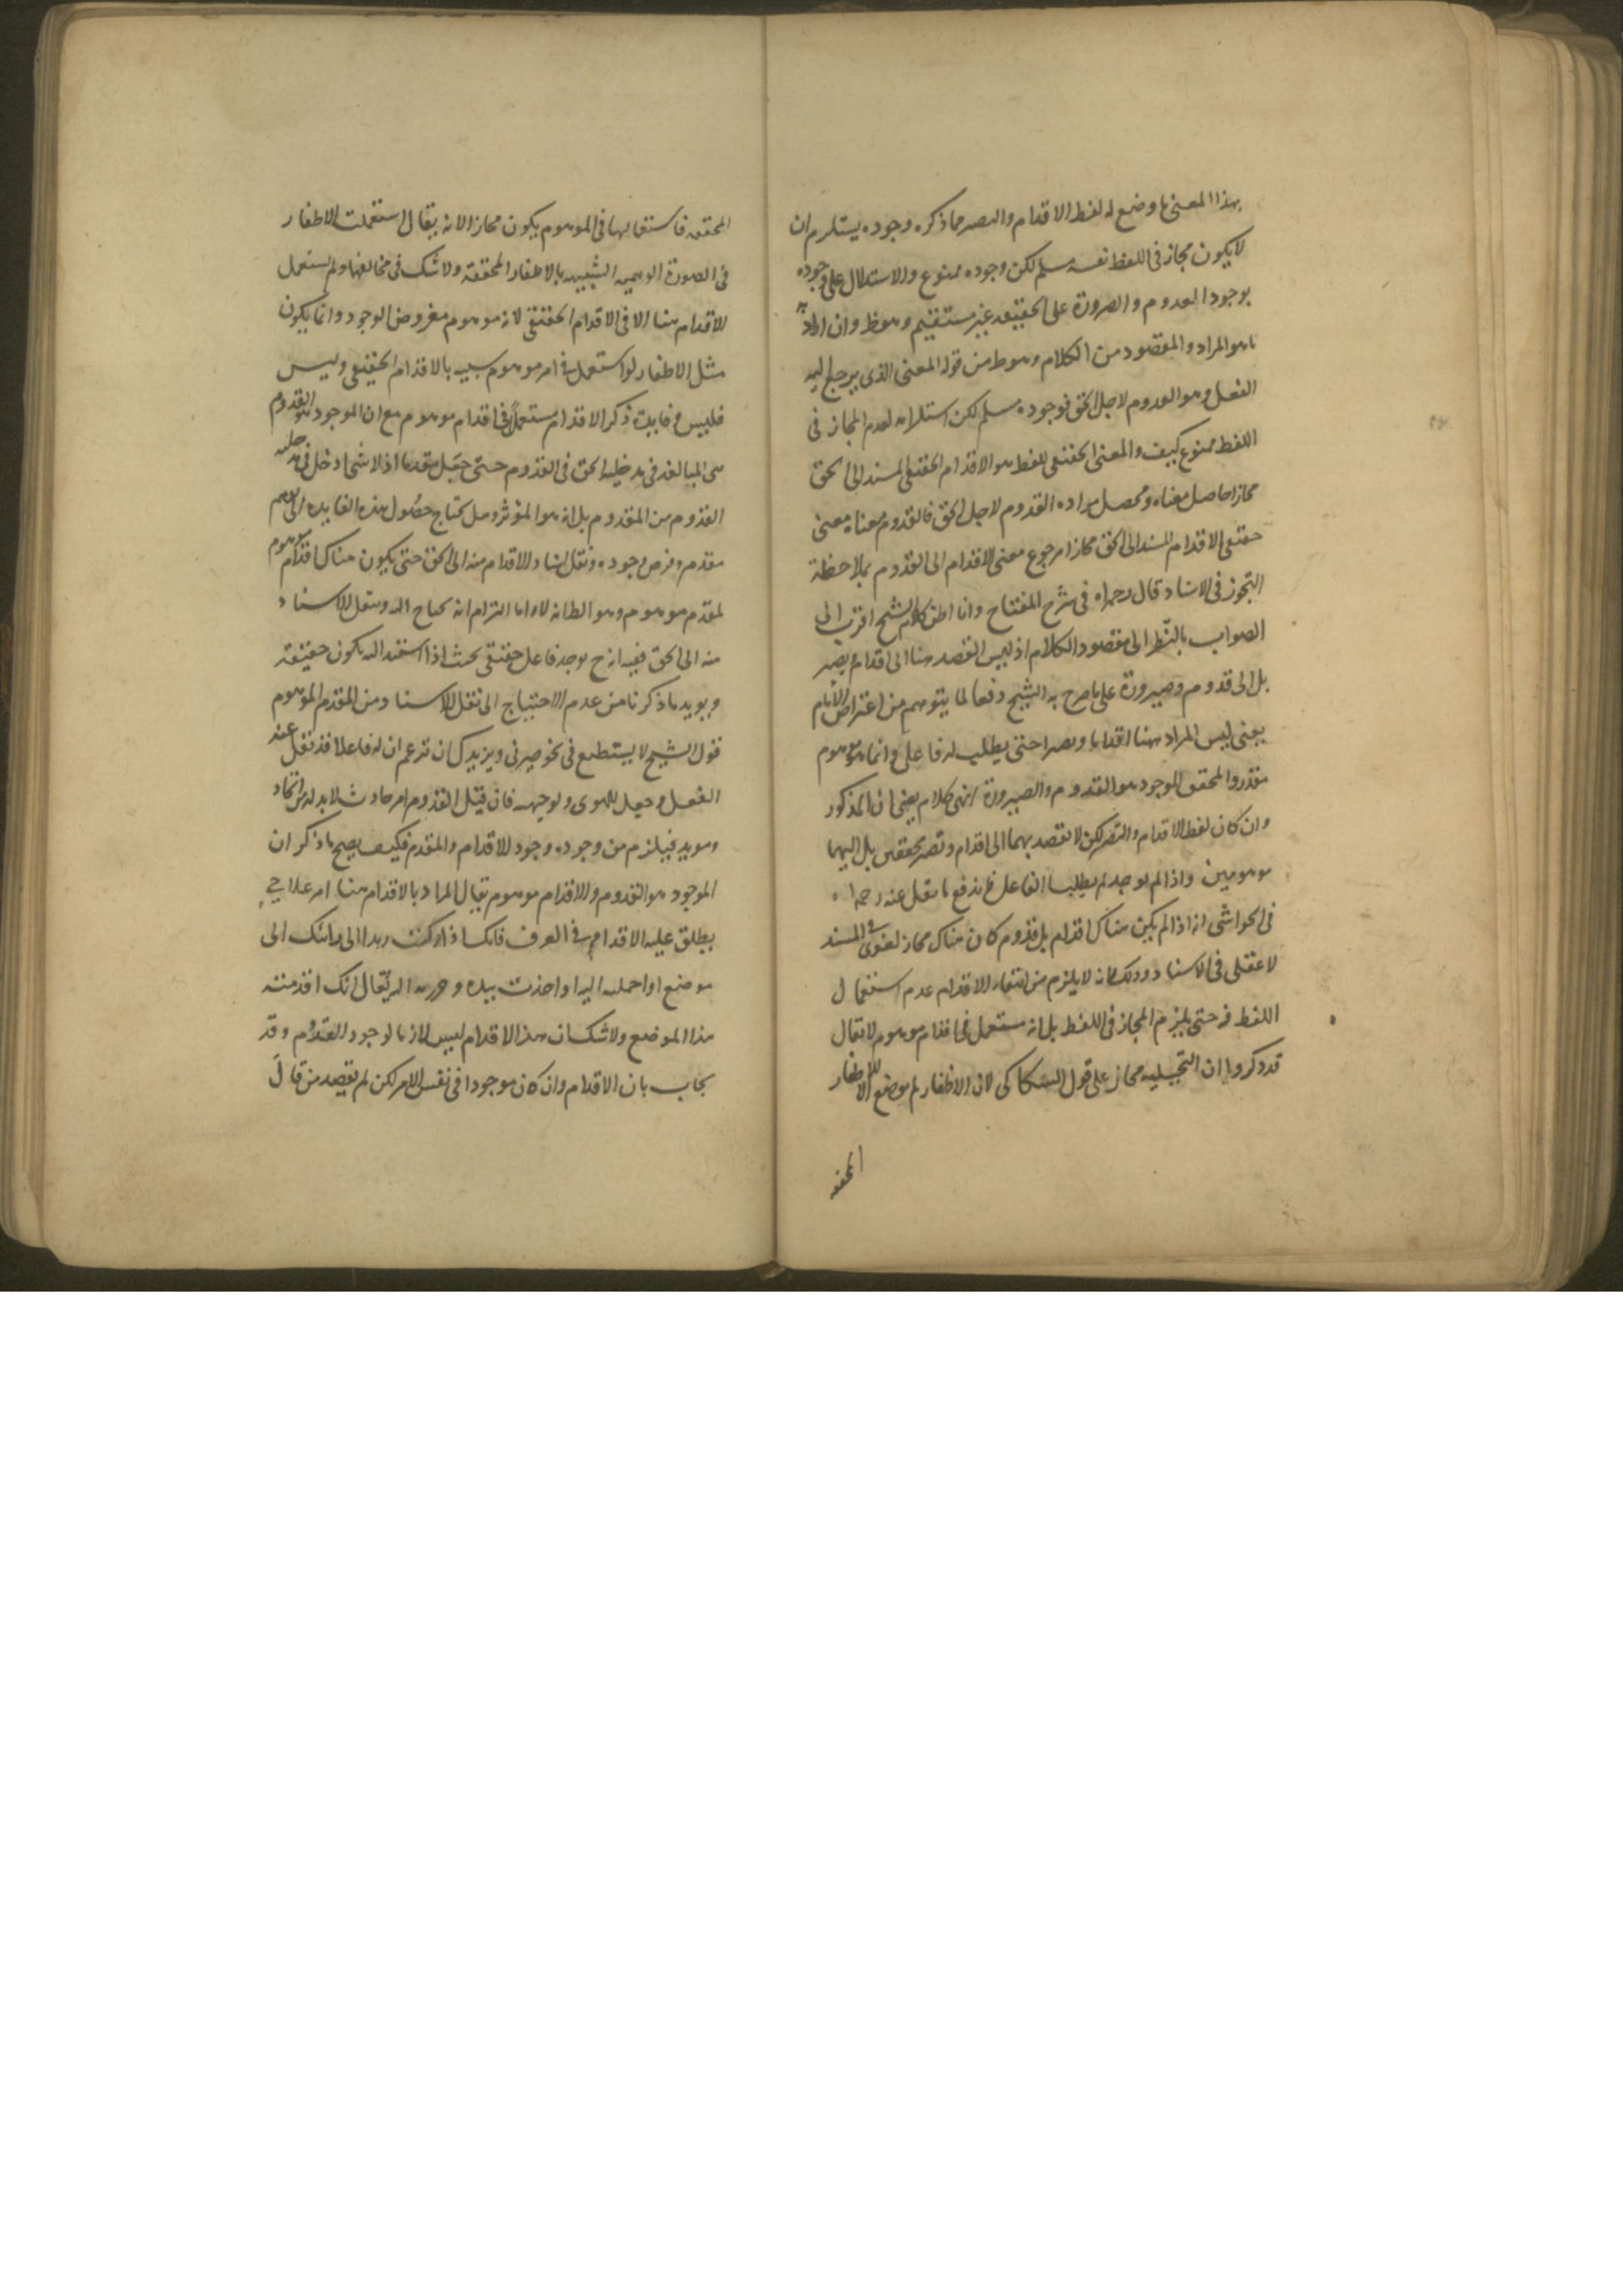 بهذا المعنى ما وضع له لفظ الاقدام والتصيير مما ذكره وجوده يستلزم ان
لا يكون مجاز فى اللفظ نفسه مسلم لكن وجوده ممنوع والاستدلال على وجوده
بوجود القدوم والصيرورة على الحقيقة غير مستقيم وهو ظ وان اراد به
ما هو المراد والمقصود من الكلام وهو ظ من قوله المعنى الذى يرجع اليه
الفعل وهو القدوم لاجل الحق فوجوده مسلم لكن استلزامه لعدم المجاز فى
اللفظ ممنوع كيف والمعنى الحقيقى للفظ هو الاقدام الحقيقى المسند الى الحق
مجازا حاصل معناه ومحصل مراده القدوم لاجل الحق فالقدوم معناه معنى
حقيقى الاقدام المسند الى الحق مجازا مرجوع معنى الاقدام الى القدوم بملاحظة
التجوز فى الاسناد قال رحمه الله فى شرح المفتاح وانا اظن كلام الشيخ اقرب الى
الصواب بالنظر الى مقصود الكلام اذ ليس القصد هنا الى اقدام وتصيير
بل الى قدوم وصيرورة على ما صرح به الشيخ دفعا لما يتوهم من اعتراض الامام
يعنى ليس المراد ههنا اقداما وتصييرا حتى يطلب له فاعل وانما هو موهوم
مقدر والمحقق الموجود هو القدوم والصيرورة انتهى كلامه يعنى ان المذكور
وان كان لفظ الاقدام والتصيير لكن لا نقصد بهما الى اقدام وتصيير محققين بل اليهما
موهومين واذا لم يوجد لم يطلب الفاعل فاندفع ما نقل عنه رحمه الله
فى الحواشى انه اذا لم يكن هناك اقدام بل قدوم كان هناك مجاز لغوى فى المسند
لا عقلى فى الاسناد وذلك لانه لا يلزم من انتفاء الاقدام عدم استعمال
اللفظ فيه حتى يلزم المجاز فى اللفظ بل انه مستعمل فى اقدام موهوم لا يقال
قد ذكروا ان التخييلية مجاز على قول السكاكى لان الاظفار لم يوضع الا للاظفار
المحققة
المحققة فاستعمالها فى الموهوم يكون مجازا لانه يقال استعملت الاظفار
فى الصورة الوهمية الشبيهة بالاظفار المحققة ولا شك فى مخالفتها ولم يستعمل
الاقدام هنا الا فى الاقدام الحقيقى لانه موهوم مفروض الوجود وانما يكون
مثل الاظفار لو استعمل فى امر موهوم شبيه بالاقدام الحقيقى وليس
فليس وفايدة ذكر الاقدام مستعملا فى اقدام موهوم مع ان الموجود هو القدوم
هى المبالغة فى مدخلية الحق فى القدوم حتى جعل مقدما اذ لا شئ ادخل فى مدخلية
القدوم من المقدوم بل انه هو المؤثر وهل تحتاج حصول هذه الفايدة الى توهم
مقدم وفرض وجوده ونقل اسناد الاقدام منه الى الحق حتى يكون هناك اقدام موهوم
لمقدم موهوم وهو الظ انه لا واما التزام انه يحتاج اليه ونقل الاسناد
منه الى الحق ففيه انه ح يوجد فاعل حقيقى بحيث اذا اسند اليه يكون حقيقة
ويويد ما ذكرنا من عدم الاحتياج الى نقل الاسناد ومن المقدم الموهوم
قول الشيخ لا يستطيع فى نحو صيرنى ويزيدك ان تزعم ان له فاعلا قد نقل عنه
الفعل وجعل للهوى ولوجهه فان قيل القدوم امر حادث لا بد له من اتحاد
ومويد فيلزم من وجوده وجود الاقدام والمقدم فكيف يصح ما ذكر ان
الموجود هو القدوم والاقدام موهوم يقال المراد بالاقدام هنا امر علاجى
يطلق عليه الاقدام فى العرف فانك اذا دكنت زيدا الى اتيانك الى
موضع او احملته اليه او اخذت بيده وجررته اليه يقال انك اقدمته
هذا الموضع ولا شك ان هذا الاقدام ليس لازما لوجود القدوم وقد
يجاب بان الاقدام وان كان موجودا فى نفس الامر لكن لم يقصد من قال